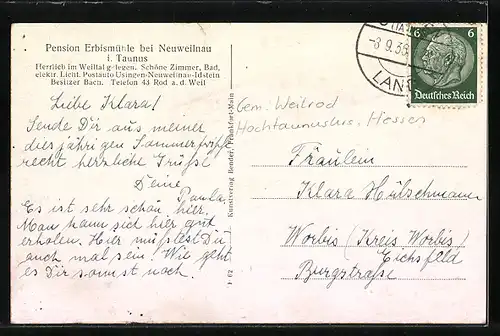 Pension Erbismühle bei Neuweilnau
i. Taunus
Herrlich im Weiltal gelegen. Schöne Zimmer, Bad,
elektr. Licht. Postauto Usingen-Neuweilnau-Idstein
Besitzer Bach. Telefon 43 Rod a. d. Weil
Liebe Klara!
Sende Dir aus meiner
diesjährigen Sommerfrische
recht herzliche Grüße
Deine
Paula.
Es ist sehr schön hier.
Man kann sich hier gut
erholen. Hier müßtest Du
auch mal sein! Wie geht
es Dir sonst noch.
Kunstverlag Bender, Frankfurt-Main
Gem. Weilrod
Hochtaunuskrs., Hessen
-8.9.36
LAN
6 6
Deutsches Reich
Fräulein
Klara Hülschmann
Worbis (Kreis Worbis)
Eichsfeld
Burgstraße